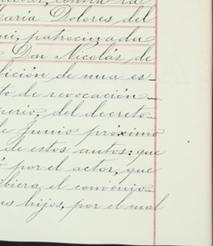 contra la
Maria Dolores del
patrocinada
Don Nicolás de
dición de una es-
to de revocación
perio, del decreto
de Junio próximo
de estos autos: que
por el actor, que
ibiera el convenio
us hijos, por el cual